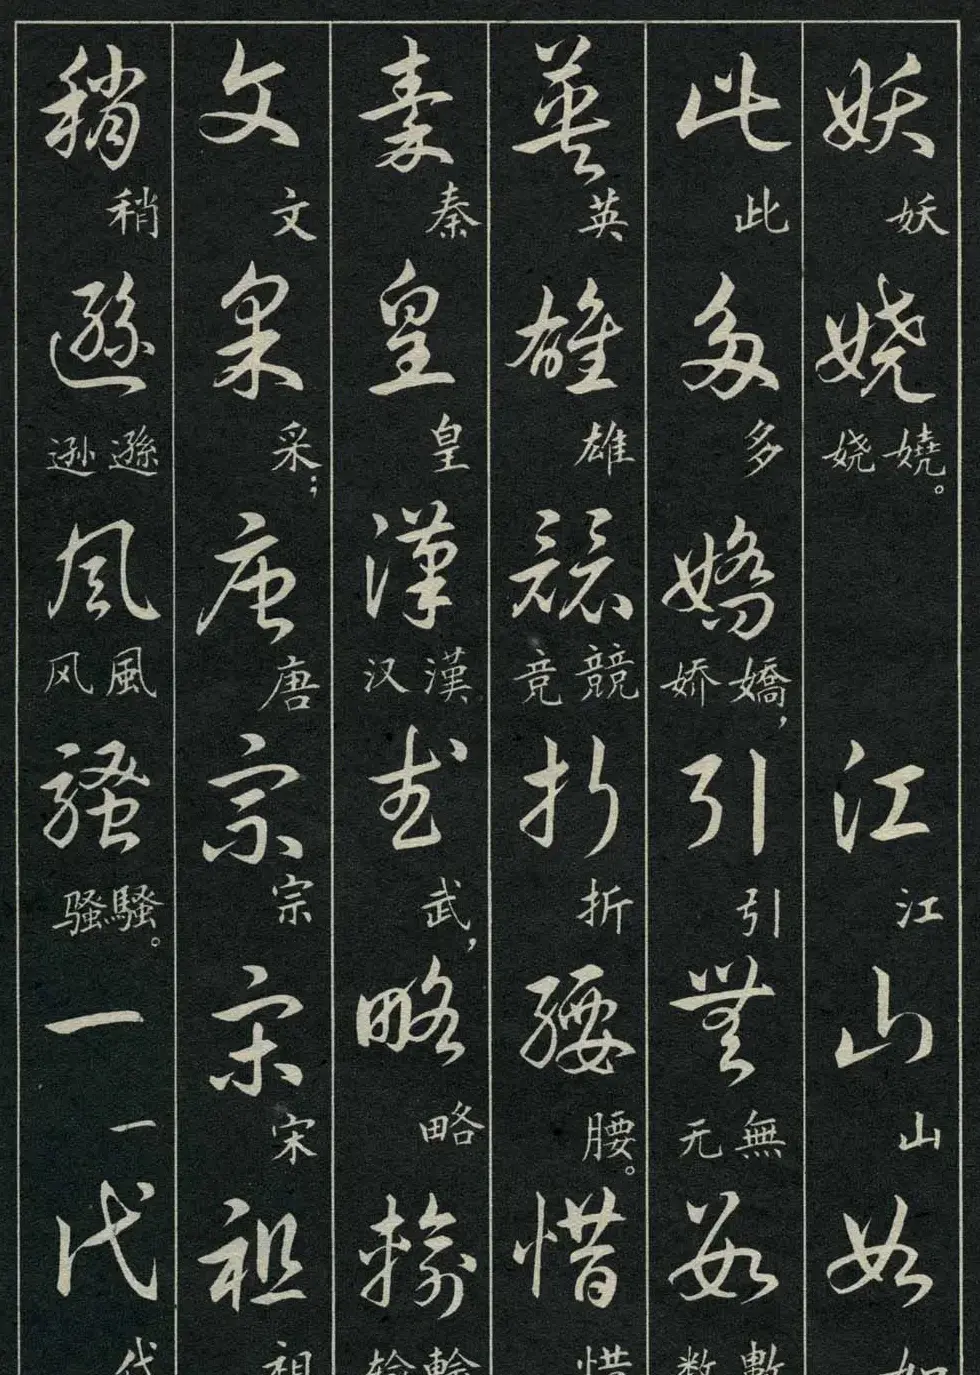 妖 妖 嬈 嬈。娆 江 江 山 山 如 如
此 此 多 多 嬌 嬌，娇 引 引 無 無 无 數 數 数
英 英 雄 雄 競 競 竞 折 折 腰 腰。惜 惜
秦 秦 皇 皇 漢 漢 汉 武 武，略 略 輸 輸 输
文 文 采 采；唐 唐 宗 宗 宋 宋 祖 祖
稍 稍 遜 遜 逊 風 風 风 騷 騷。骚 一 一 代 代